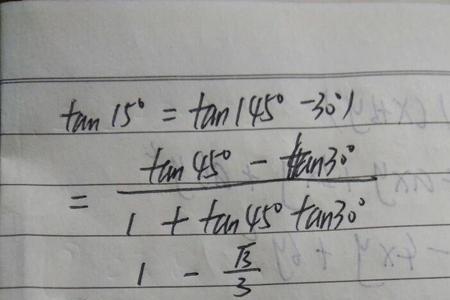 tan 15° = tan(45° - 30°)
= \frac{tan 45° - tan 30°}{1 + tan 45° tan 30°}
1 - \frac{\sqrt{3}}{3}